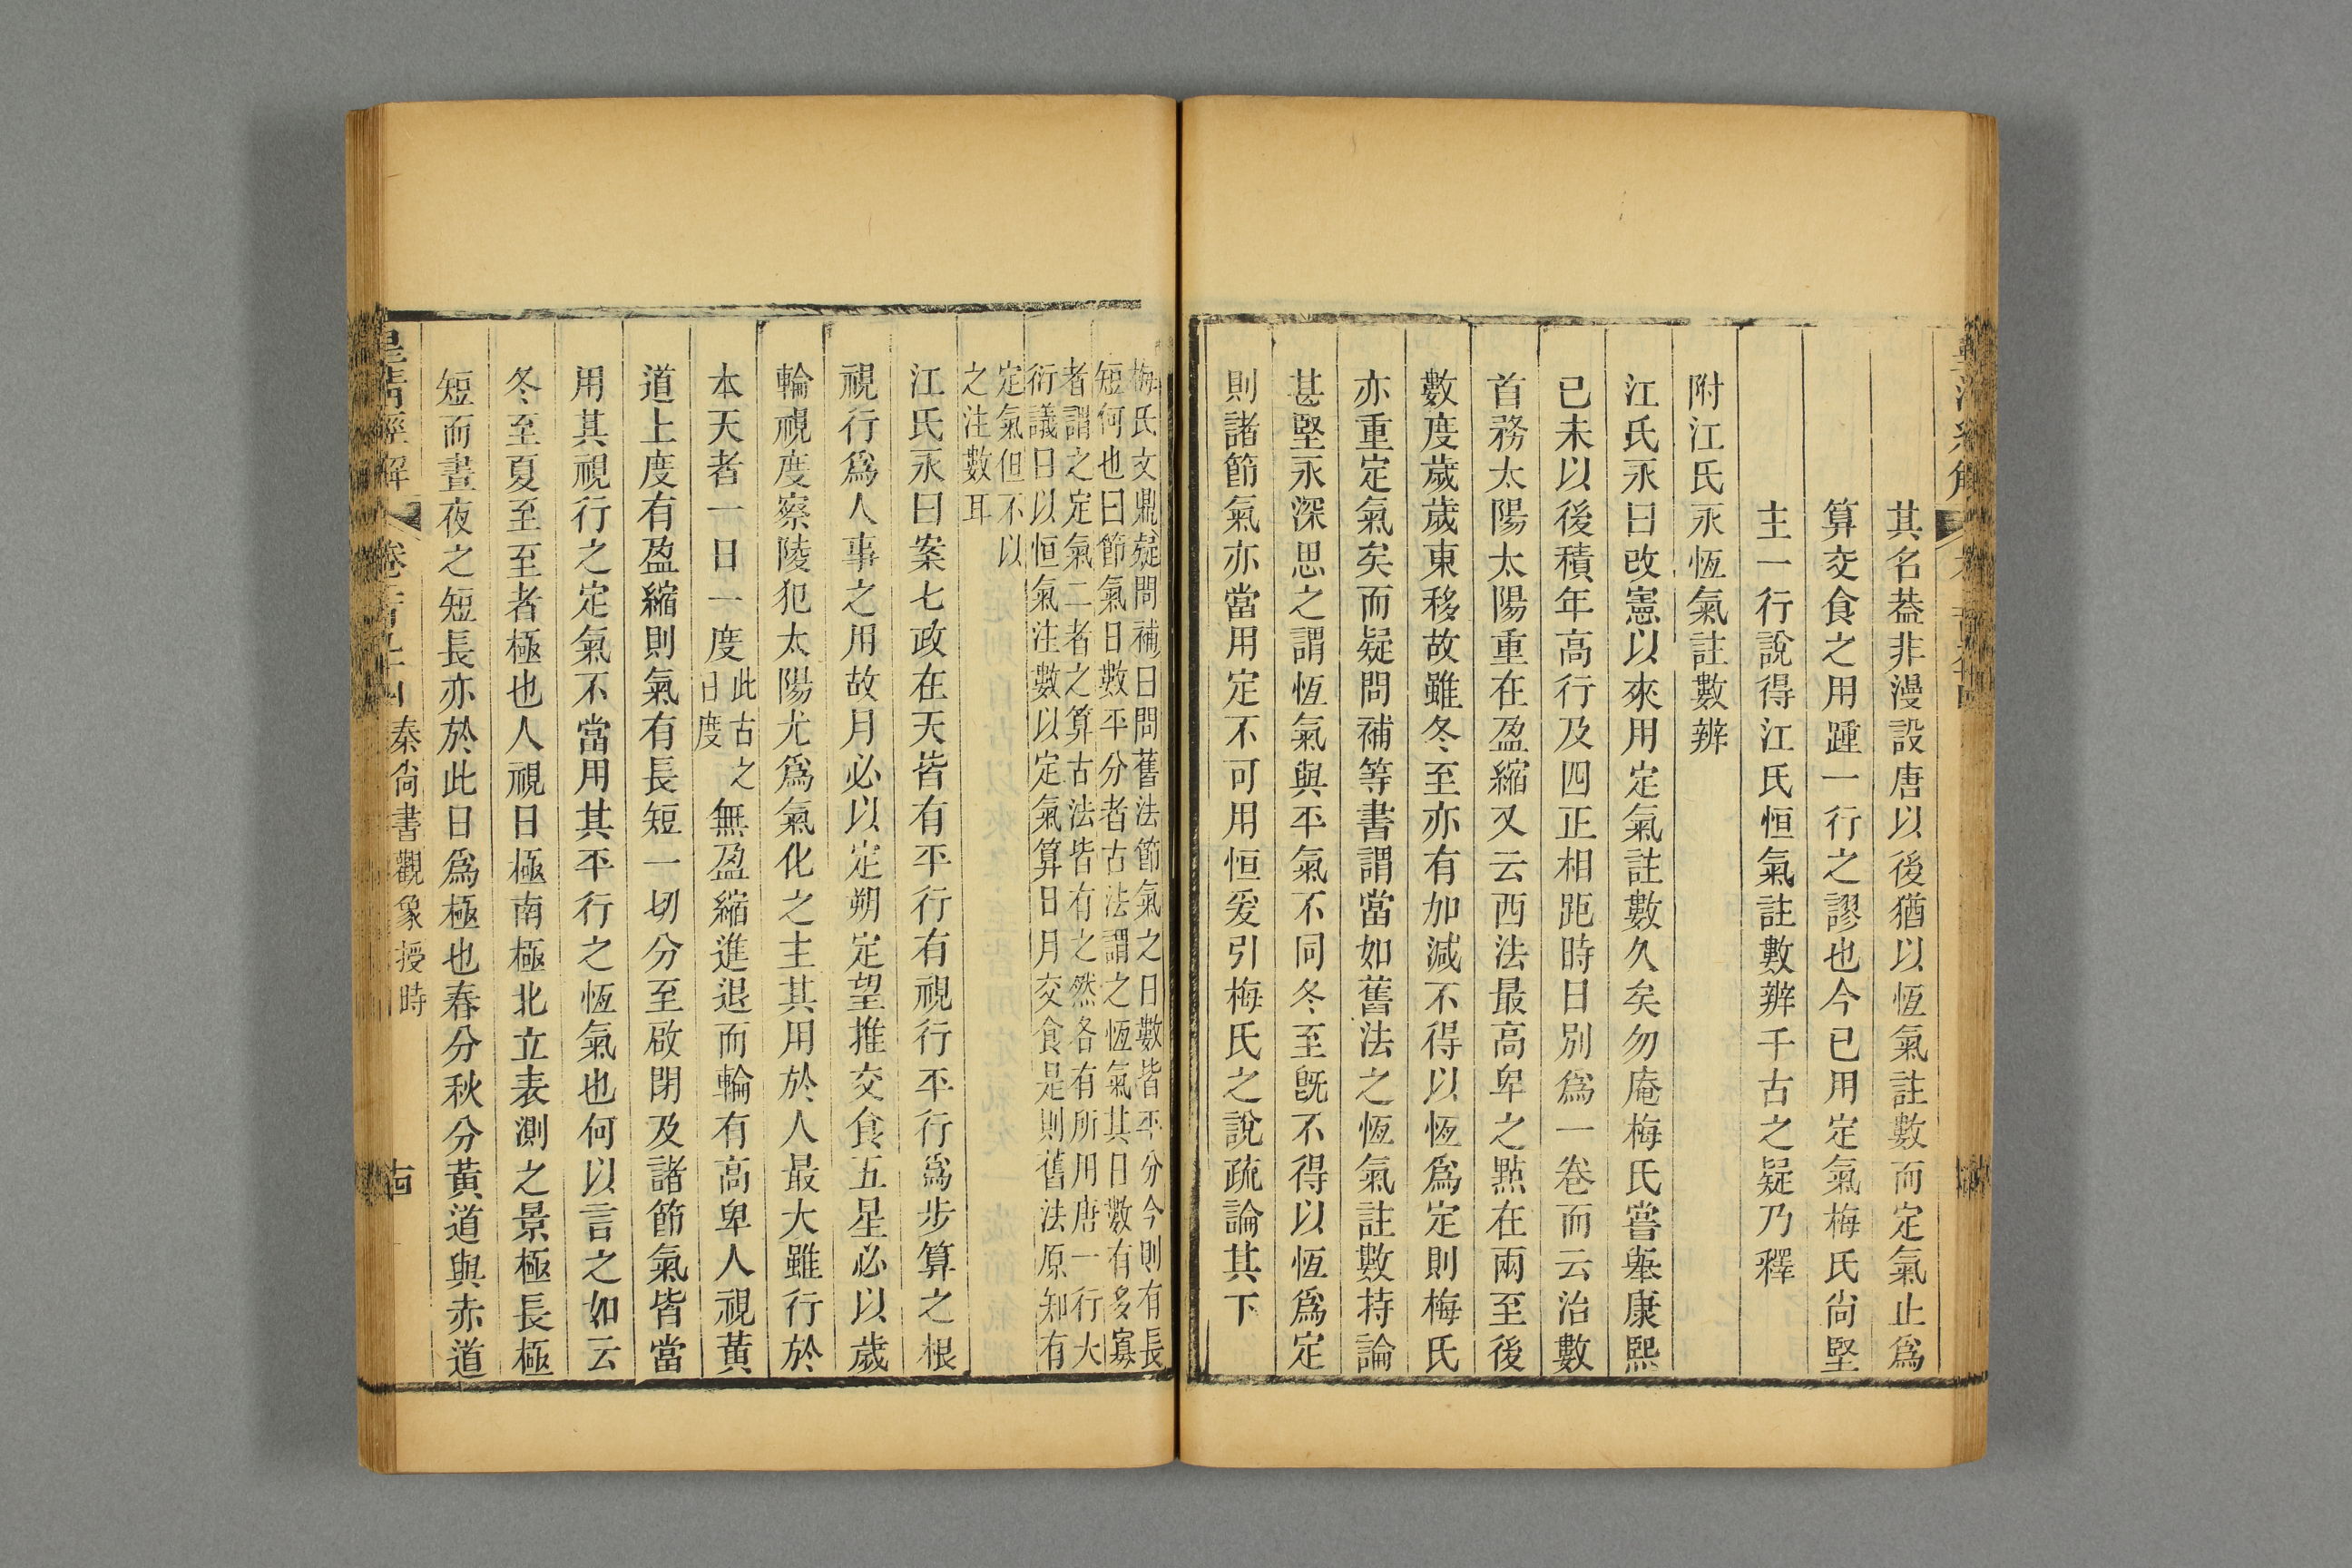 其名葢非漫設唐以後猶以恆氣註數而定氣止爲
算交食之用踵一行之謬也今已用定氣梅氏尙堅
主一行說得江氏恒氣註數辨千古之疑乃釋
附江氏永恆氣註數辨
江氏永曰改憲以來用定氣註數久矣勿庵梅氏嘗舉康熙
已未以後積年高行及四正相距時日別爲一卷而云治數
首務太陽太陽重在盈縮又云西法最高卑之點在兩至後
數度歲歲東移故雖冬至亦有加減不得以恆爲定則梅氏
亦重定氣矣而疑問補等書謂當如舊法之恆氣註數持論
甚堅永深思之謂恆氣與平氣不同冬至旣不得以恆爲定
則諸節氣亦當用定不可用恒爰引梅氏之說疏論其下
梅氏文鼎疑問補曰問舊法節氣之日數皆平分今則有長
短何也曰節氣日數平分者古法謂之恆氣其日數有多寡
者謂之定氣二者之算古法皆有之然各有所用唐一行大
衍議曰以恒氣注數以定氣算日月交食是則舊法原知有
定氣但不以
之注數耳
江氏永曰案七政在天皆有平行有視行平行爲步算之根
視行爲人事之用故月必以定朔定望推交食五星必以歲
輪視度察陵犯太陽尤爲氣化之主其用於人最大雖行於
本天者一日一度此古之日度無盈縮進退而輪有高卑人視黃
道上度有盈縮則氣有長短一切分至啟閉及諸節氣皆當
用其視行之定氣不當用其平行之恆氣也何以言之如云
冬至夏至至者極也人視日極南極北立表測之景極長極
短而晝夜之短長亦於此日爲極也春分秋分黃道與赤道
皇淸經解
秦尙書觀象授時